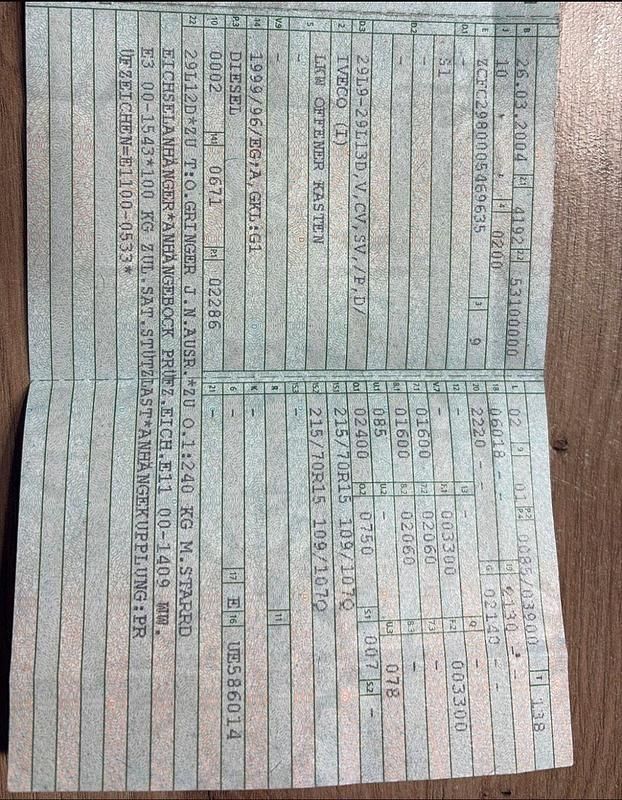 B 26.03.2004 2.1 4192 2.2 53100000
J 10 4 0200
E ZCFC2980005469635 3 9
D.1 -
S1
D.2 -
-
D.3 29L9-29L13D,V,CV,SV,/P,D/
2 IVECO (I)
5 LKW OFFENER KASTEN
-
V.9 -
14 1999/96/EG;A,GKL:G1
P.3 DIESEL
10 0002 14.1 0671 P.1 02286
L 02 9 01 P.2 P.4 0085/03900 T 138
18 06018 - - 19 2130 - -
20 2220 - - G 02140 - -
12 - 13 - Q -
V.7 - F.1 003300 F.2 003300
7.1 01600 7.2 02060 7.3 -
8.1 01600 8.2 02060 8.3 -
U.1 085 U.2 - U.3 078
O.1 02400 O.2 0750 S.1 007 S.2 -
15.1 215/70R15 109/107Q
15.2 215/70R15 109/107Q
15.3 -
R - 11
K -
6 - 17 E 16 UE586014
21 -
22 29L12D*ZU T:O.GRINGER J.N.AUSR.*ZU O.1:240 KG M.STARRD
EICHSELANHÄNGER*ANHÄNGEBOCK PRUEZ.EICH.E11 00-1409 MW.
E3 00-1543*100 KG ZUL.SAT.STÜTZLAST*ANHÄNGEKUPPLUNG:PR
UFZEICHEN=E1100-0533*